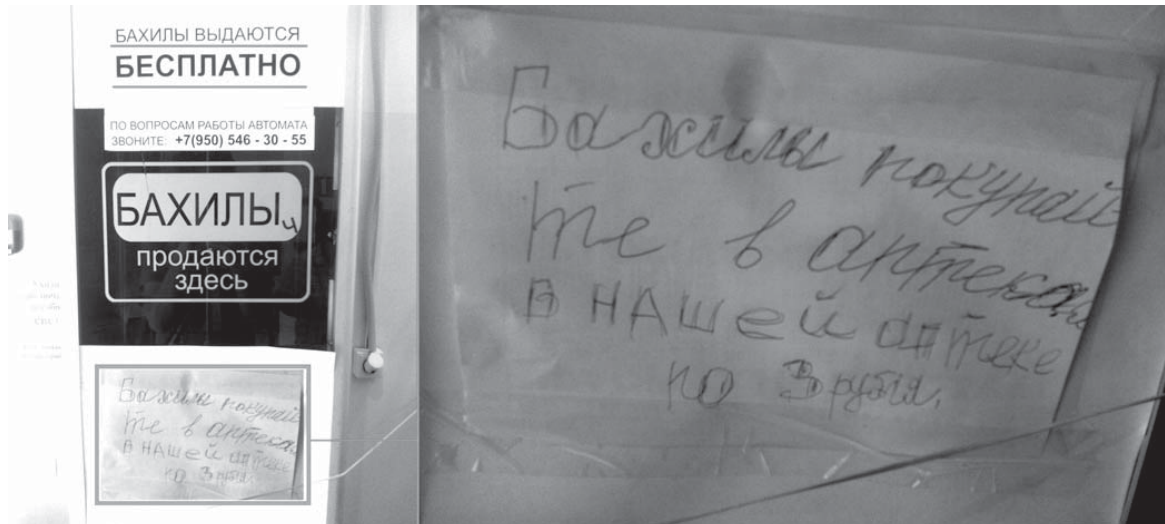 БАХИЛЫ ВЫДАЮТСЯ
БЕСПЛАТНО
ПО ВОПРОСАМ РАБОТЫ АВТОМАТА
ЗВОНИТЕ: +7(950) 546 - 30 - 55
БАХИЛЫ ч
продаются
здесь
Бахилы покупай
те в аптеках
В НАШЕЙ аптеке
по 3 рубля.
Бахилы покупай
те в аптеках
В НАШЕЙ аптеке
по 3 рубля.